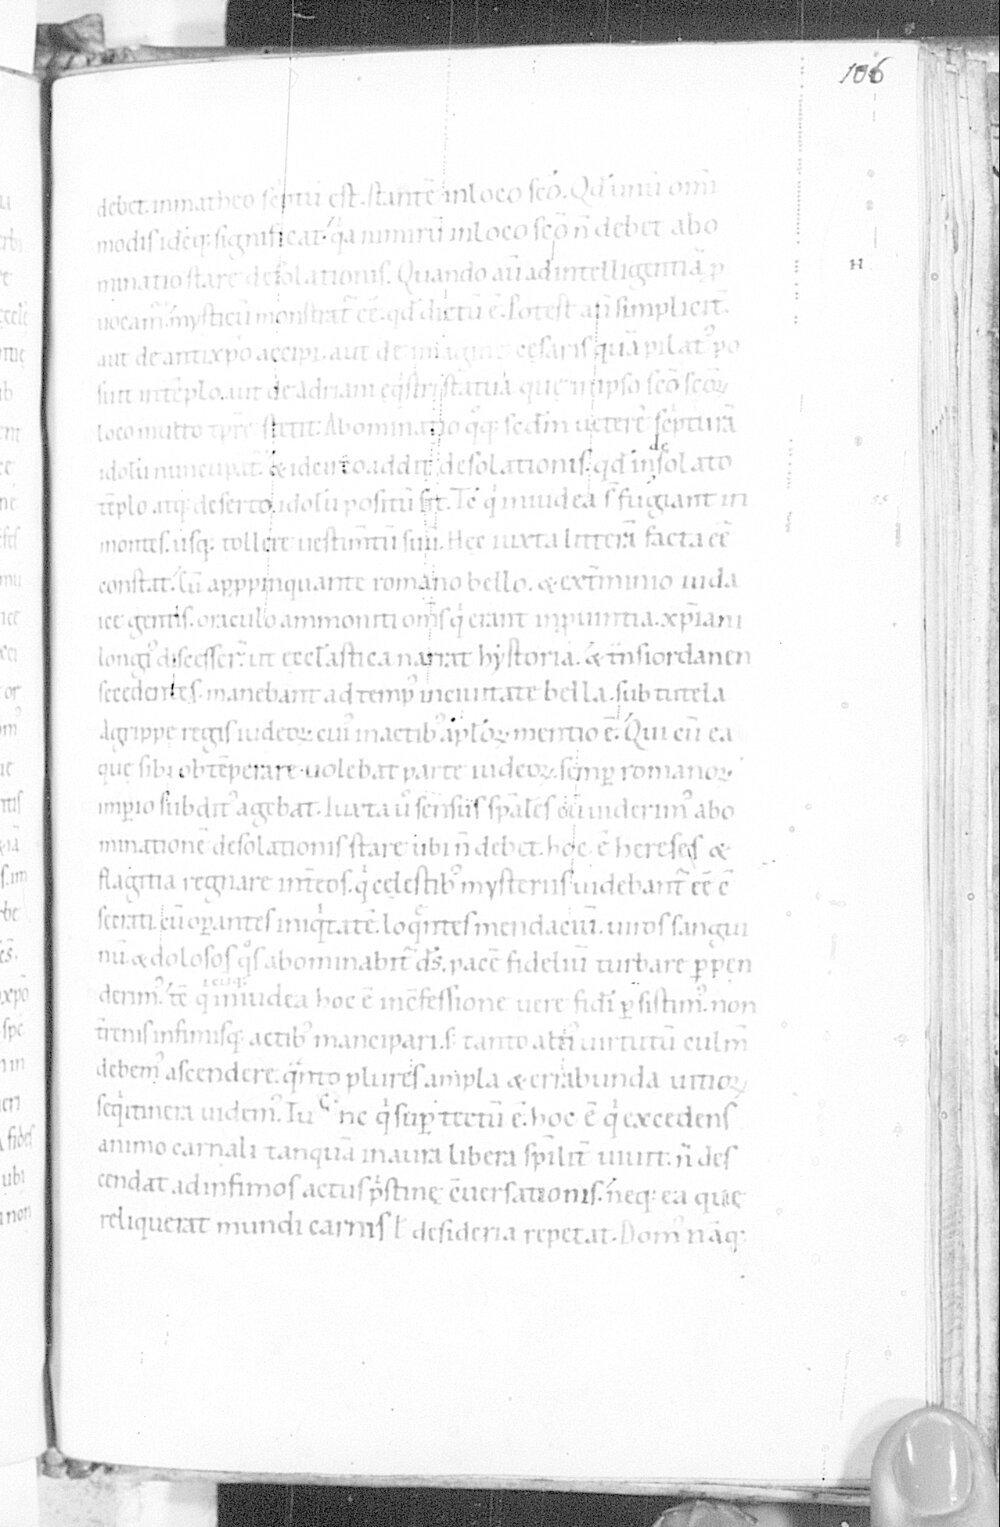 106
debet. in matheo scͥptū est. stantē in loco scō. Qd̄ unū om̄i
modis idēq; significat. qͥa nimirū in loco scō n̄ debet abo
minatio stare desolationis. Quando aū ad intelligentiā ꝓ
uocam̄. mysticū monstrat̄ eē. qd̄ dictū ē. Potest aū simplicit̄
aut de antixp̄o accipi. aut de imagine cęsaris quā pilat᷒ po
suit in tēplo. aut de adriani eqͥstri statua que in ipso scō scōꝝ
loco multo tp̄re stetit. Abominatio qͦq; scd̄m ueterē scͥpturā
idolū nuncupat̄. & idcirco addit̄ desolationis. qd̄ in desolato
tēplo atq; deserto. idolū positū sit. Tc̄ qͥ in iudea s̄ fugiant in
H
montes. usq; tollere uestim̄tū suū. Hec iuxta litterā facta eē
constat. Cū appropinquante romano bello. & ext̄minio iuda
ice gentis. oraculo ammoniti om̄s qͥ erant in ꝓuintia. xp̄iani
longi᷒ discesser̄. ut eccl̄astica narrat hystoria. & t̄ns iordanen
secedentes. manebant ad temp᷒ in ciuitate bella. sub tutela
Agrippe regis iudeoꝝ. cui᷒ in actib᷒ apl̄oꝝ mentio ē. Qui cū ea
que sibi obtēperare uolebat parte iudeoꝝ. semꝑ romanoꝝ
imꝑio subdit᷒ agebat. Iuxta ū sensus sp̄ales cū uiderim᷒ abo
minationē desolationis stare ubi n̄ debet. hoc ē hereses &
flagitia regnare int̄ eos. qͥ celestib᷒ mysteriis uidebant̄ eē c̄
secrati. cū oꝑantes iniqͥtatē. loqͣntes mendaciū. uiros sangui
nū & dolosos qͦs abominabit̄ dn̄s. pacē fideliū turbare ꝑpen
derim᷒. tc̄ qͥ in iudea hoc ē in c̄fessione uere fidei ꝑsistim᷒. non
t̄renis infimisq; actib᷒ mancipari. s; tanto alti᷒ uirtutū culm̄
debem᷒ ascendere. qͣnto plures ampla & errabunda uitioꝝ
seqͥ itinera uidem᷒. Tūc ne qͥ suꝑ tectū ē. hoc ē qͥ excedens
animo carnali tanquā in aura libera sp̄alit̄ uiuit. n̄ des
cendat ad infimos actus pͥstinę c̄uersationis. neq; ea quę
reliquerat mundi carnis l̄ desideria repetat. Dom᷒ nāq;